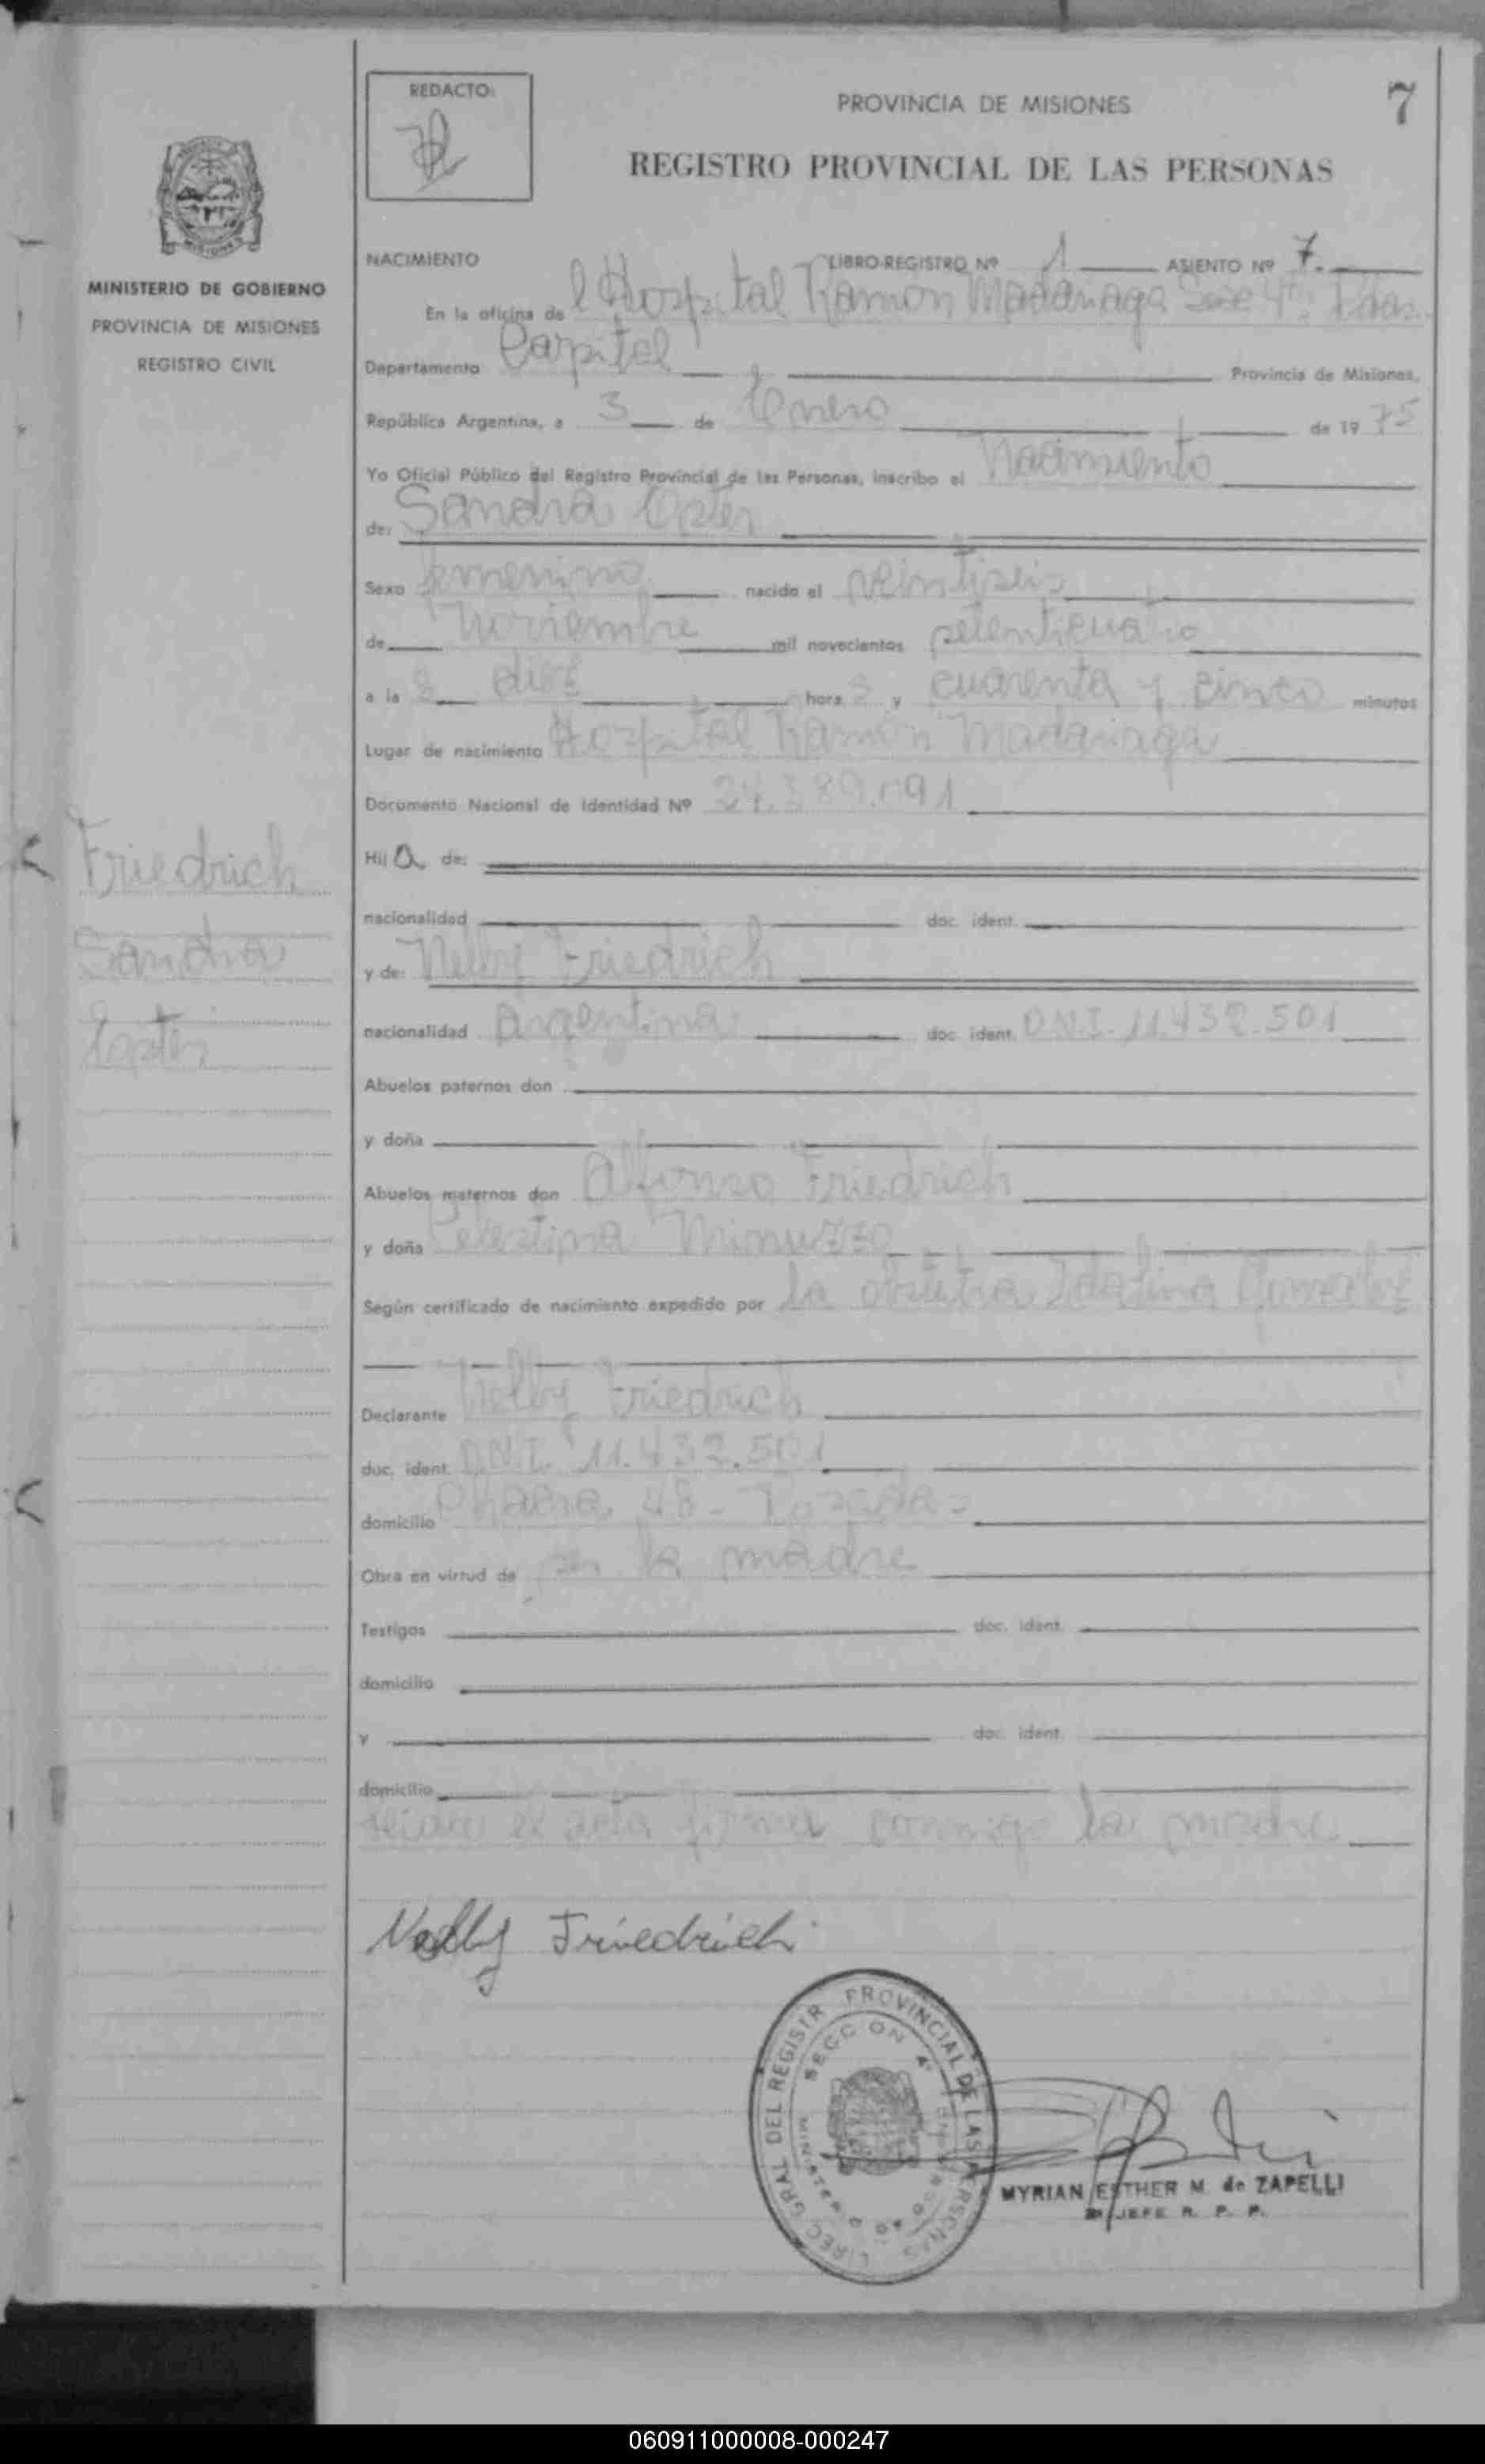 7
REDACTO:
PROVINCIA DE MISIONES
REGISTRO PROVINCIAL DE LAS PERSONAS
MINISTERIO DE GOBIERNO
PROVINCIA DE MISIONES
REGISTRO CIVIL
Friedrich
Sandra
Ester
NACIMIENTO LIBRO-REGISTRO Nº 1 ASIENTO Nº 7.
En la oficina de l Hospital Ramón Madariaga Secc 4ta. Pdas.
Departamento Capital Provincia de Misiones,
República Argentina, a 3 de Enero de 1975
Yo Oficial Público del Registro Provincial de las Personas, inscribo el Nacimiento
de: Sandra Ester
Sexo femenino nacido el veintiseis
de Noviembre mil novecientos setenticuatro
a las diez horas y cuarenta y cinco minutos
Lugar de nacimiento Hospital Ramón Madariaga
Documento Nacional de Identidad Nº 24.389.091
Hija de:
nacionalidad doc. ident.
y de: Nelly Friedrich
nacionalidad Argentina doc. ident. D.N.I. 11.432.501
Abuelos paternos don
y doña
Abuelos maternos don Alfonso Friedrich
y doña Celestina Minuzzo
Según certificado de nacimiento expedido por la obstetra Idalina Gonzalez
Declarante Nelly Friedrich
doc. ident. D.N.I. 11.432.501
domicilio Chacra. 48 - Posadas
Obra en virtud de ser la madre
Testigos doc. ident.
domicilio
y doc. ident.
domicilio
el acta firma conmigo la madre
Nelly Friedrich
DIREC. GRAL. DEL REGISTR PROVINCIAL DE LAS PERSONAS
SECCION 4ª
MYRIAN ESTHER M. de ZAPELLI
JEFE R. P. P.
060911000008-000247